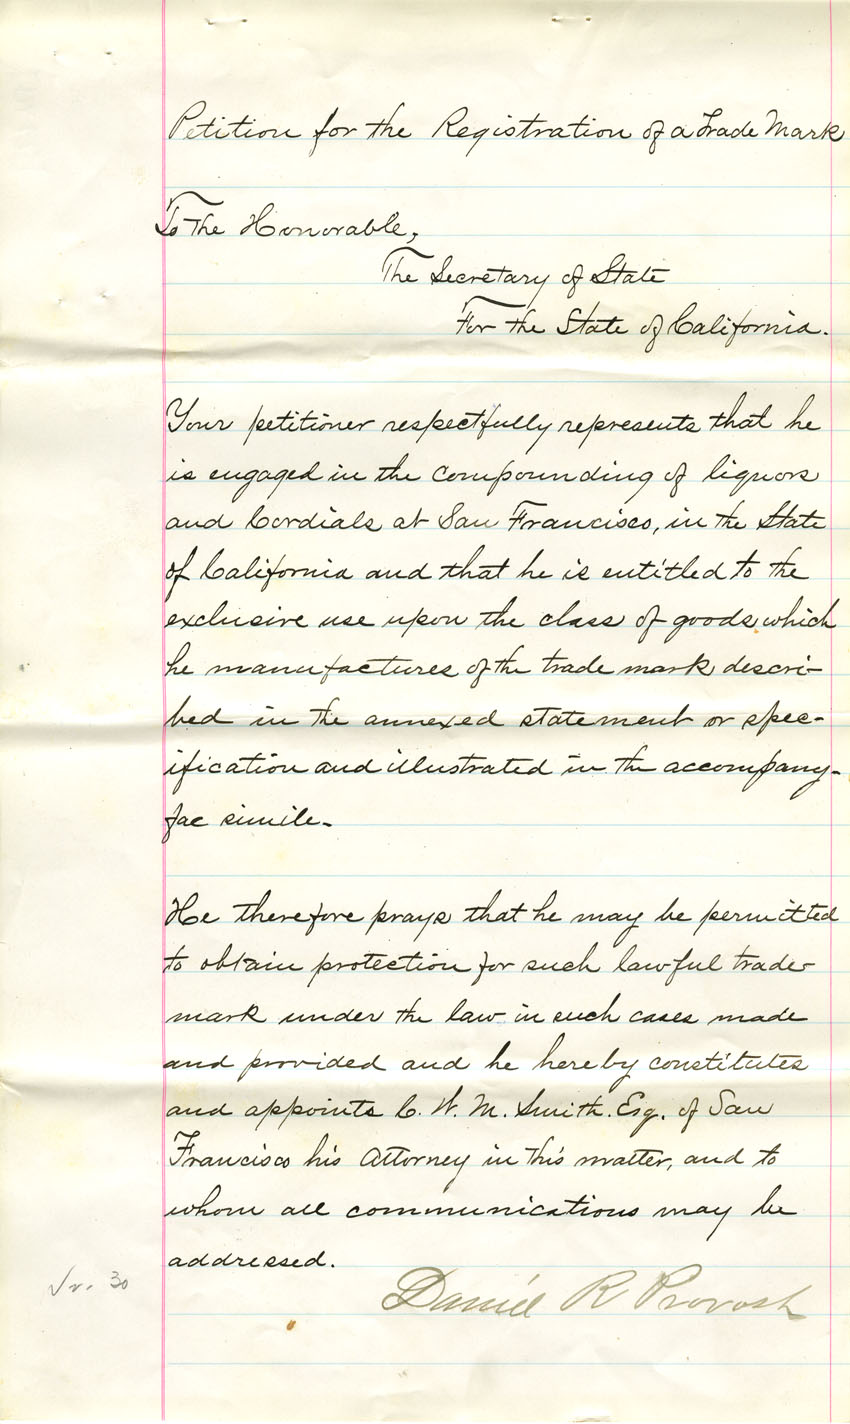 Petition for the Registration of a Trade Mark
To the Honorable,
The Secretary of State
For the State of California.
Your petitioner respectfully represents that he
is engaged in the compounding of liquors
and Cordials at San Francisco, in the State
of California and that he is entitled to the
exclusive use upon the class of goods which
he manufactures of the trade mark descri-
bed in the annexed statement or spec-
ification and illustrated in the accompany-
fac simile.
He therefore prays that he may be permitted
to obtain protection for such lawful trade
mark under the law in such cases made
and provided and he hereby constitutes
and appoints C. W. M. Smith. Esq. of San
Francisco his Attorney in this matter, and to
whom all communications may be
addressed.
30
Daniel R Provost